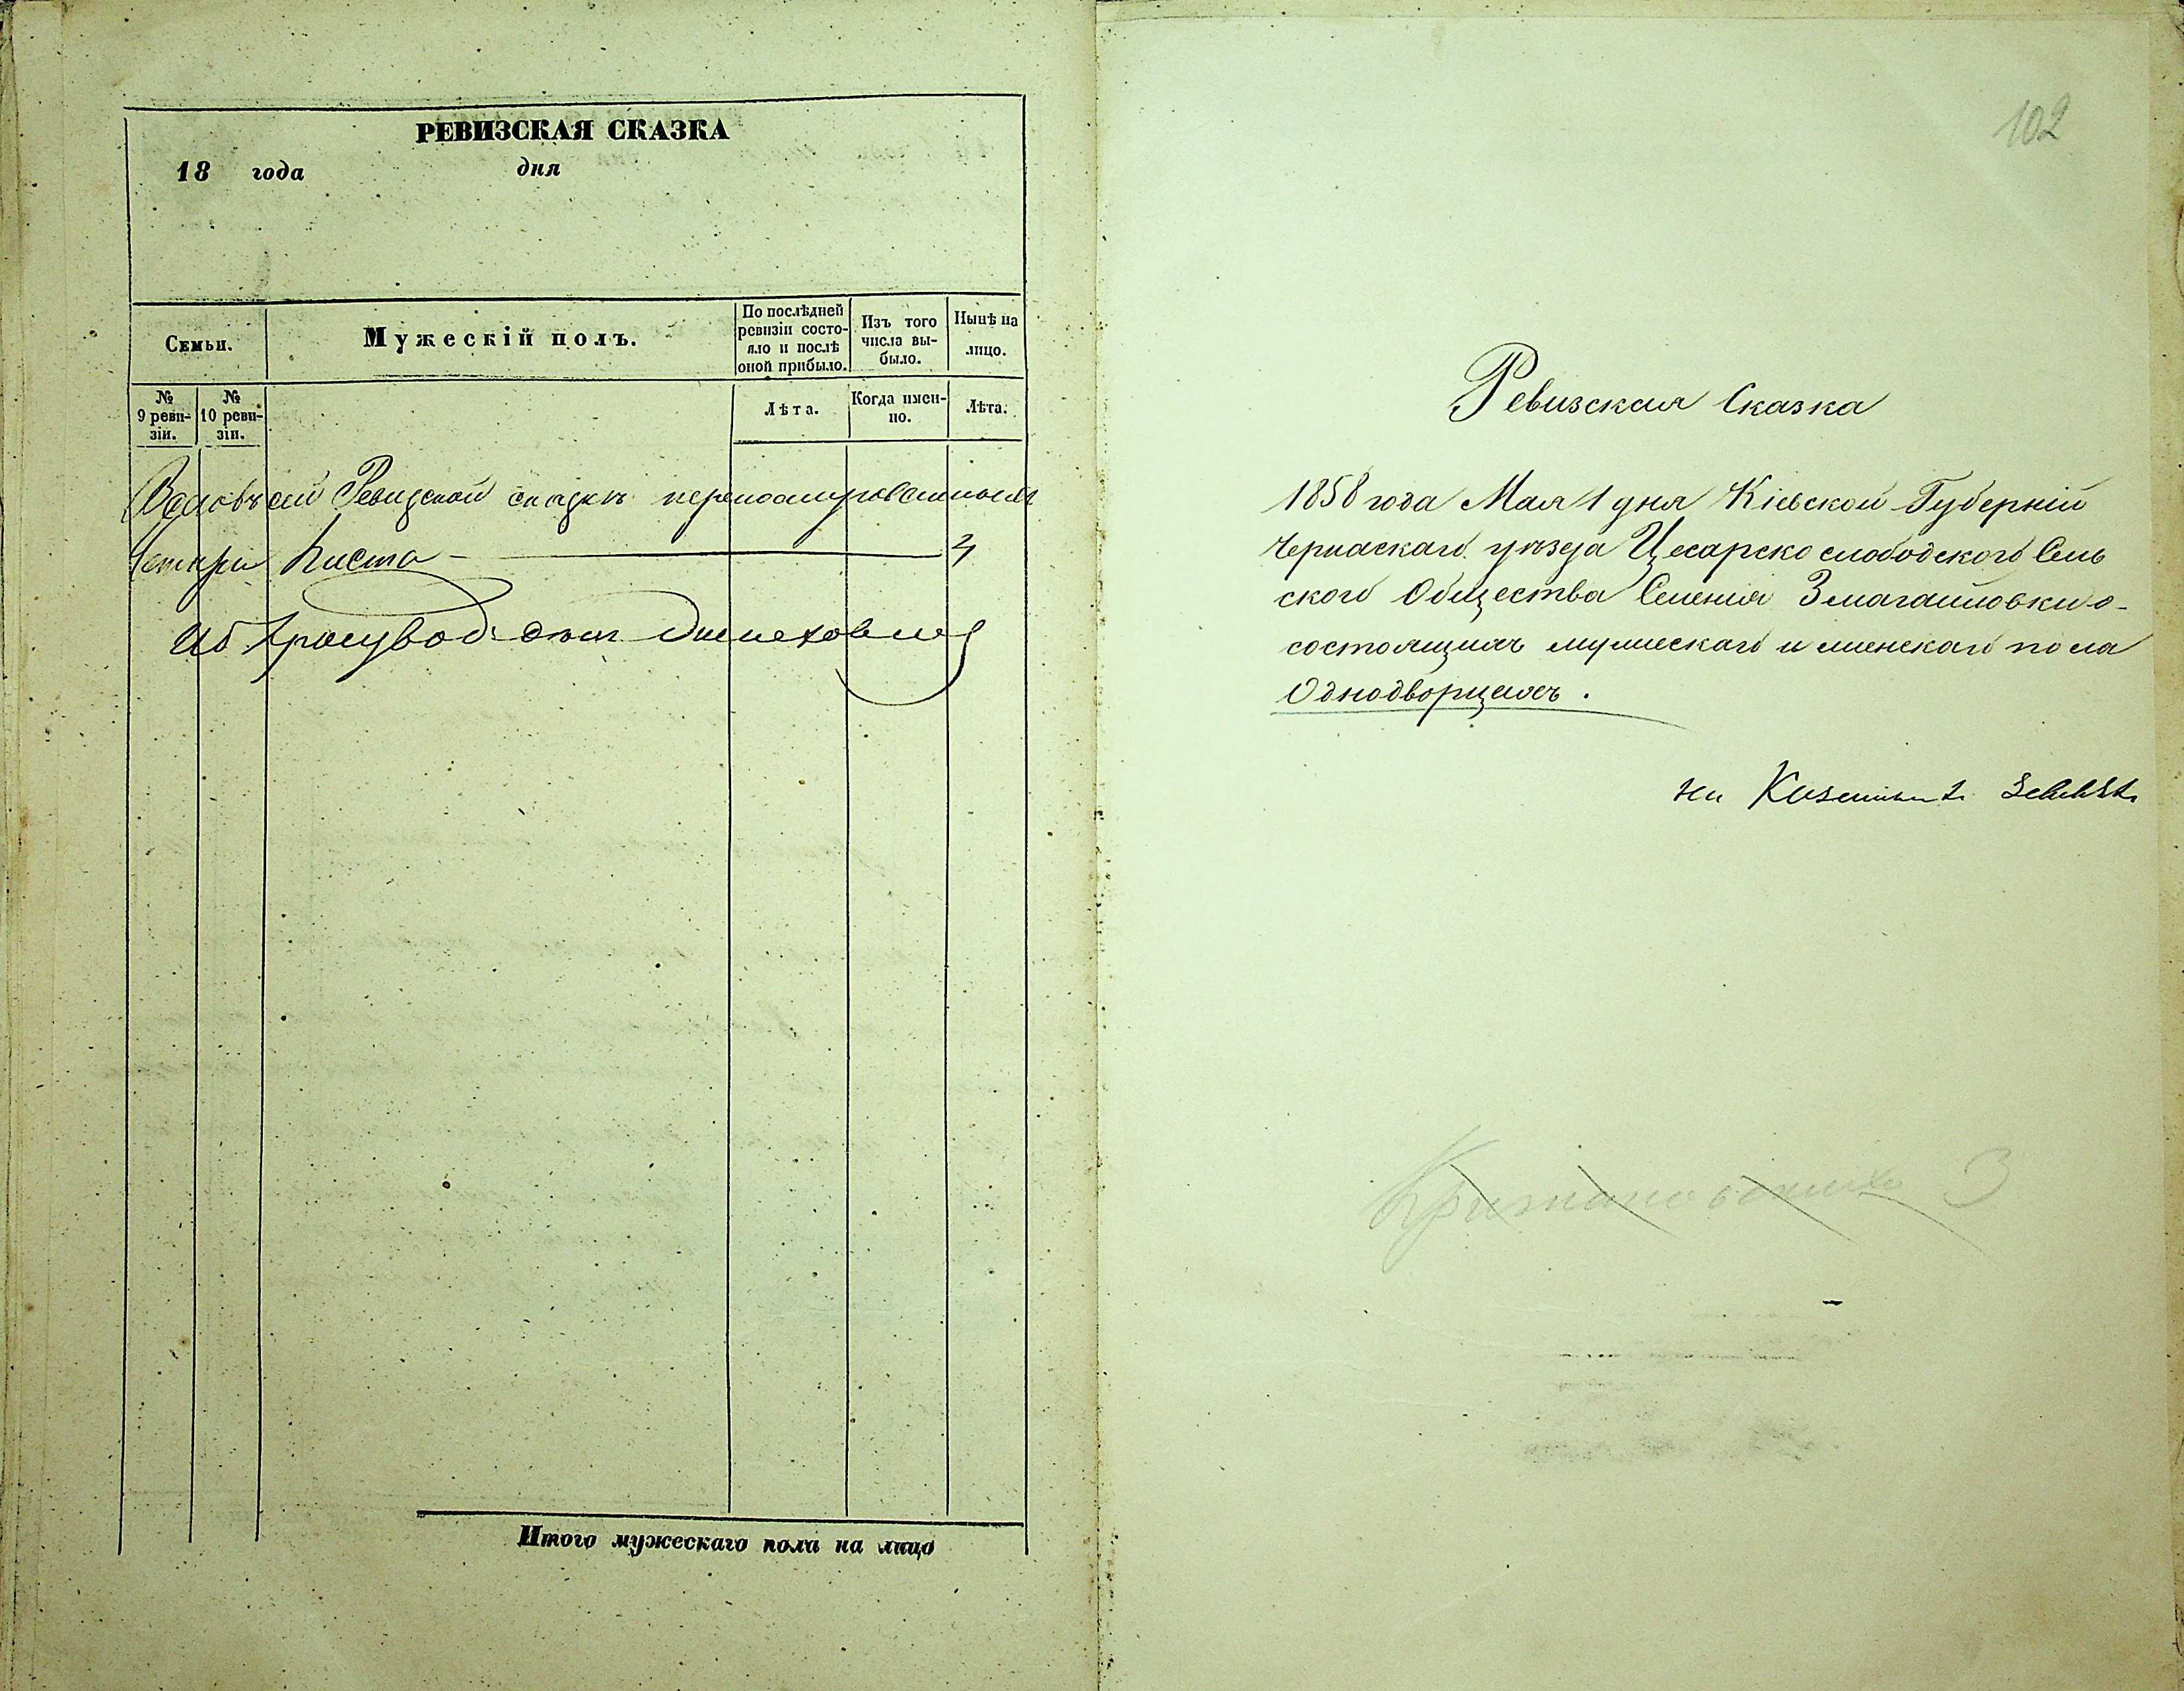 РЕВИЗСКАЯ СКАЗКА
18 года дня
Семьи.
Мужескій полъ.
По послѣдней
ревизіи состо-
яло и послѣ
оной прибыло.
Изъ того
числа вы-
было.
Нынѣ на
лицо.
№
9 реви-
зіи.
№
10 реви-
зіи.
Лѣта.
Когда имен-
но.
Лѣта.
сей Ревизской сказкѣ
Листа 4
Итого мужескаго пола на лицо
102
Ревизская Сказка
1858 года Мая 1 дня Кіевской Губерній
Черкаскаго уѣзда Цесарско слободского Сель
ского Общества Селенія Змагайловки о-
состоящихъ мужескаго и женскаго пола
Однодворцахъ.
3